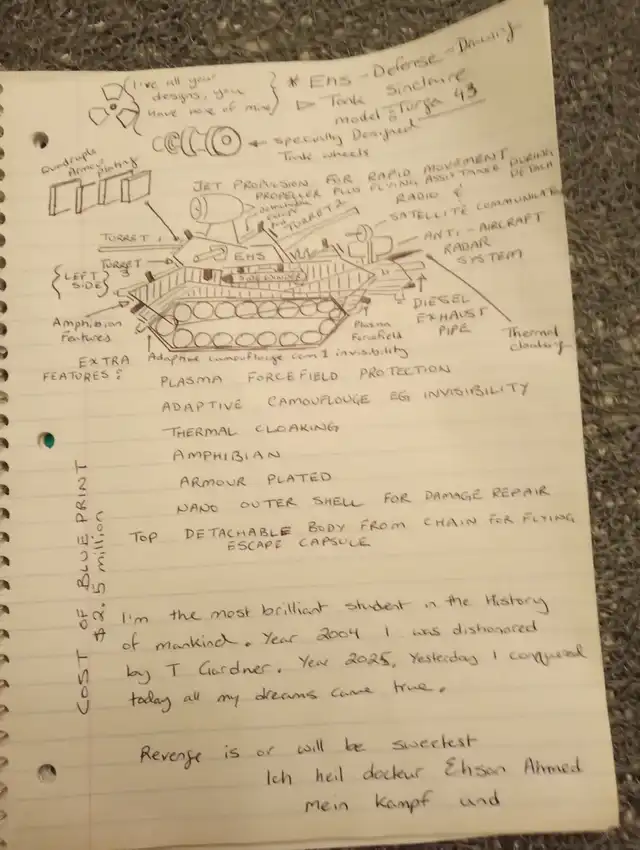 I've all your
designs, you
have none of mine
* EHS - Defense = Drawing
Tank Sinclaire
model : Turga 43
specially Designed
Tank wheels
Quadruple
Armour plating
JET PROPULSION FOR RAPID MOVEMENT
PROPELLER PLUS FLYING ASSISTANCE DURING
DETACH
detachable
escape
pod
TURRET 2
RADIO &
SATELLITE COMMUNICATI
ANTI - AIRCRAFT
RADAR
SYSTEM
TURRET 1
TURRET 3
EHS
{LEFT
SIDE}
DIESEL
EXHAUST
PIPE
Thermal
cloaking
Amphibian
Features
Plasma
Forcefield
Adaptive camouflouge com 1 invisibility
EXTRA
FEATURES :
PLASMA FORCEFIELD PROTECTION
ADAPTIVE CAMOUFLOUGE EG INVISIBILITY
THERMAL CLOAKING
AMPHIBIAN
ARMOUR PLATED
NANO OUTER SHELL FOR DAMAGE REPAIR
TOP DETACHABLE BODY FROM CHAIN FOR FLYING
ESCAPE CAPSULE
COST OF BLUE PRINT
$2.5 million
I'm the most brilliant student in the History
of mankind. Year 2004 I was dishonored
by T Gardner. Year 2025, Yesterday I conquered
today all my dreams came true.
Revenge is or will be sweetest
Ich heil docteur Ehson Ahmed
mein Kampf und